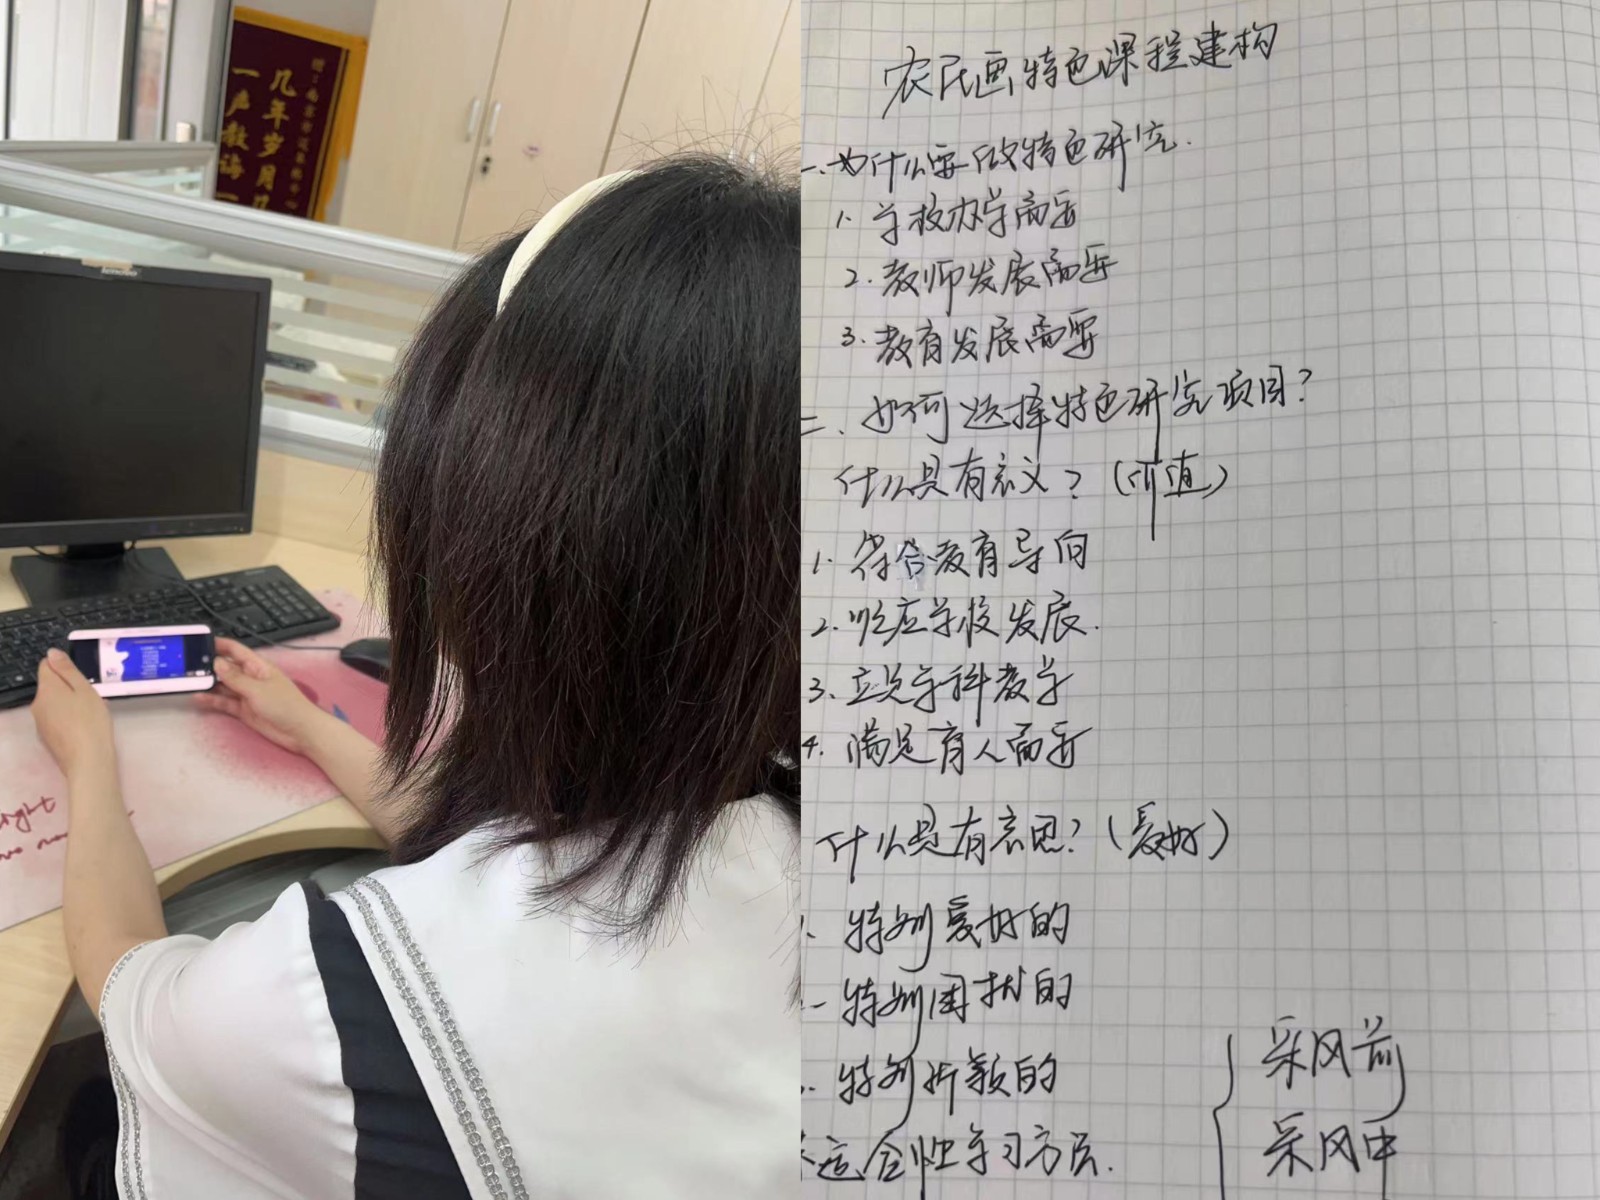 赠：南京市
几年岁月
一声教诲一
lenovo
农民画特色课程建构
一、为什么要做特色研究.
1. 学校办学需要
2. 教师发展需要
3. 教育发展需要
二、如何选择特色研究项目?
什么是有意义? (价值)
1. 符合教育导向
2. 顺应学校发展.
3. 立足学科教学
4. 满足育人需要
什么是有意思? (爱好)
特别爱好的
特别困扰的
特别折敎的
适合性学习方
采风前
采风中